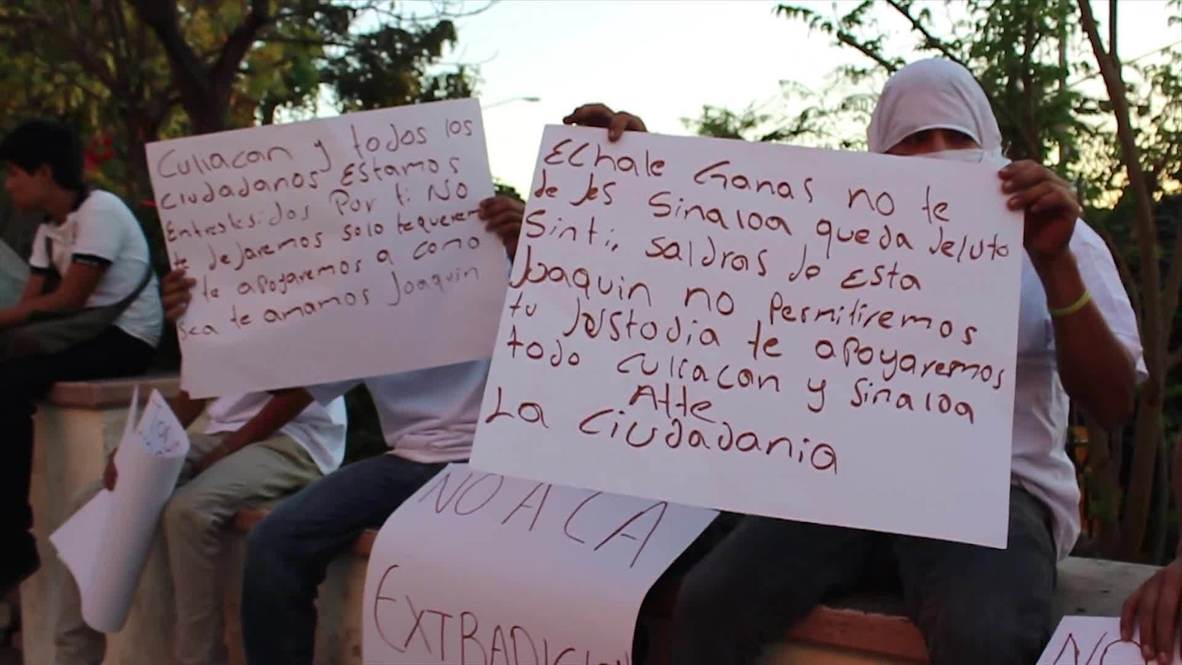 Culiacan y todos los
ciudadanos Estamos
Entrestesidos Por ti No
te dejaremos solo tequeremos
te apoyaremos a como
Sea te amamos Joaquin
Echale Ganas no te
de Jes Sinaloa queda deluto
Sin ti, saldras de Esta
Joaquin no Permitiremos
tu Justodia te apoyaremos
todo Culiacan y Sinaloa
Atte
La Ciudadania
NO A LA
EXTRADICION